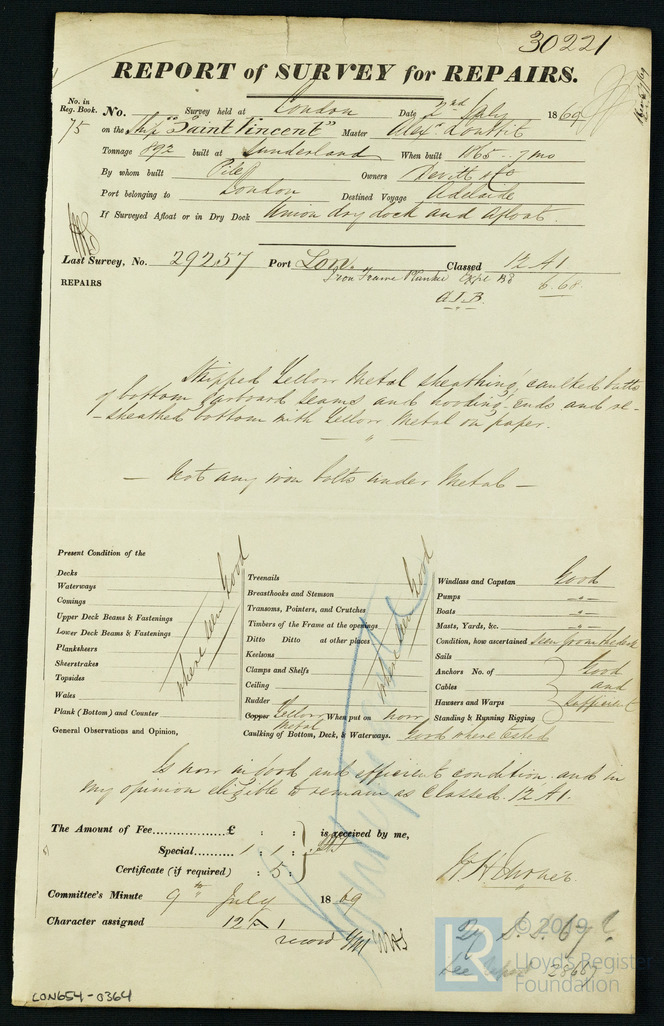 30221
REPORT of SURVEY for REPAIRS.
No. in Reg. Book. No. Survey held at London Date 2nd July 1869
75 on the Ship "Saint Vincent" Master Alex. Louttit
Tonnage 892 built at Sunderland When built 1865 .. 7 mo
By whom built Pile Owners Devitt & Co
Port belonging to London Destined Voyage Adelaide
If Surveyed Afloat or in Dry Dock Union dry dock and afloat.
Last Survey, No. 29257 Port Lon. Classed 12 A1
Iron Frame Planked 6.68
REPAIRS A.I.B.
Stripped Yellow Metal sheathing, caulked butts
of bottom garboard seams and hooding-ends and re-
-sheathed bottom with Yellow Metal on paper.
— Not any iron bolts under Metal —
Present Condition of the
Decks
Waterways
Comings
Upper Deck Beams & Fastenings
Lower Deck Beams & Fastenings
Planksheers
Sheerstrakes
Topsides
Wales
Plank (Bottom) and Counter
where seen Good
Treenails
Breasthooks and Stemson
Transoms, Pointers, and Crutches
Timbers of the Frame at the openings
Ditto Ditto at other places
Keelsons
Clamps and Shelfs
Ceiling
Rudder
where seen Good
Copper Yellow Metal When put on now
Caulking of Bottom, Deck, & Waterways. Good where tested
Windlass and Capstan Good
Pumps —"—
Boats —"—
Masts, Yards, &c. —"—
Condition, how ascertained Seen from the deck
Sails
Anchors No. of
Cables
Hawsers and Warps
Standing & Running Rigging
Good and sufficient
General Observations and Opinion,
Is now in good and efficient condition and in
my opinion eligible to remain as Classed 12 A1.
The Amount of Fee.................£ : : is received by me,
Special....... 1 : 1 :
Certificate (if required) : 5 :
Committee's Minute 9th July 1869
Character assigned 12 A 1
record YM
See Report 28687
LON654-0364
LR
© 2019
Lloyd's Register
Foundation